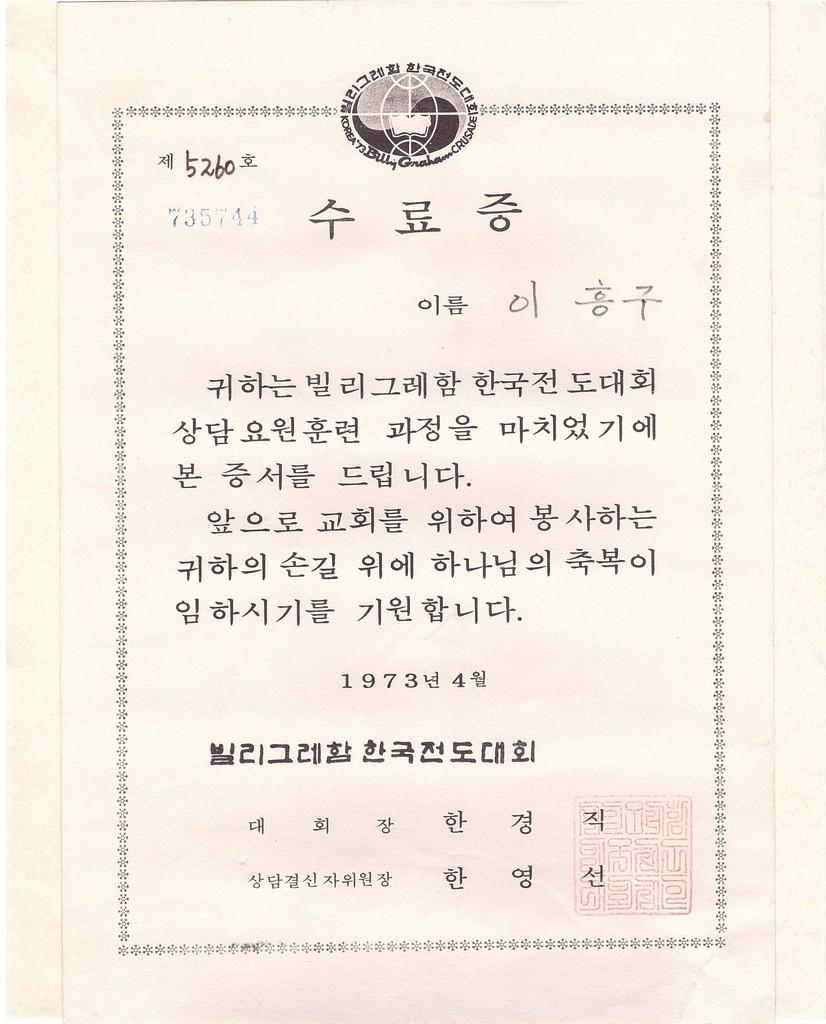 빌리그레함 한국전도대회
KOREA'73 Billy Graham CRUSADE
제 5260 호
735744
수 료 증
이름 이 흥구
귀하는 빌리그레함 한국전도대회
상담요원훈련 과정을 마치었기에
본 증서를 드립니다.
앞으로 교회를 위하여 봉사하는
귀하의 손길 위에 하나님의 축복이
임하시기를 기원합니다.
1973년 4월
빌리그레함 한국전도대회
대 회 장 한 경 직
상담결신자위원장 한 영 선